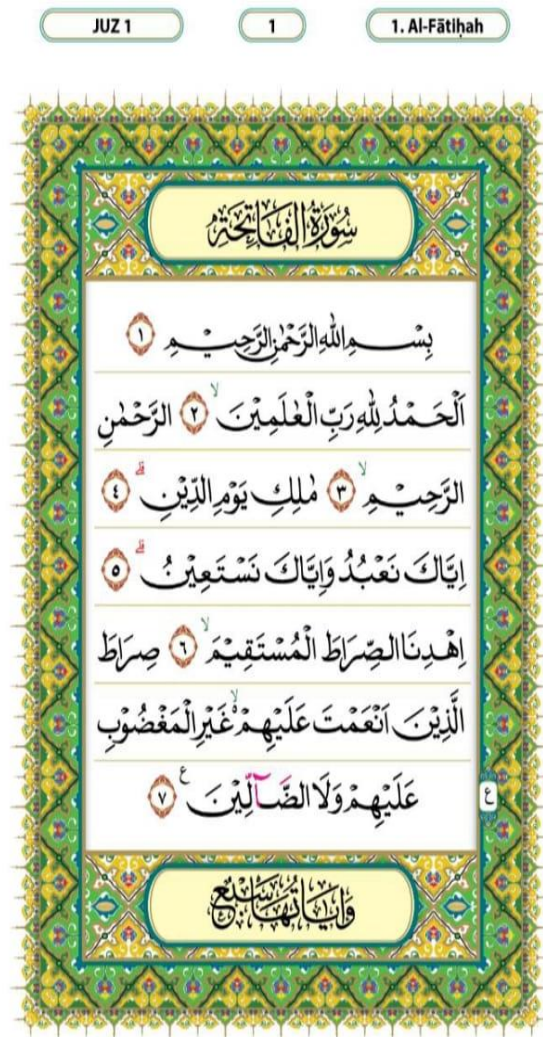 JUZ 1
1
1. Al-Fātiḥah
سُوْرَةُ الْفَاتِحَةِ
بِسْمِ اللّٰهِ الرَّحْمٰنِ الرَّحِيْمِ ١
اَلْحَمْدُ لِلّٰهِ رَبِّ الْعٰلَمِيْنَۙ ٢ الرَّحْمٰنِ
الرَّحِيْمِۙ ٣ مٰلِكِ يَوْمِ الدِّيْنِۗ ٤
اِيَّاكَ نَعْبُدُ وَاِيَّاكَ نَسْتَعِيْنُۗ ٥
اِهْدِنَا الصِّرَاطَ الْمُسْتَقِيْمَۙ ٦ صِرَاطَ
الَّذِيْنَ اَنْعَمْتَ عَلَيْهِمْ ۙ غَيْرِ الْمَغْضُوْبِ
عَلَيْهِمْ وَلَا الضَّاۤلِّيْنَ ࣖ ٧
ع
وَاٰيَاتُهَا سَبْعٌ